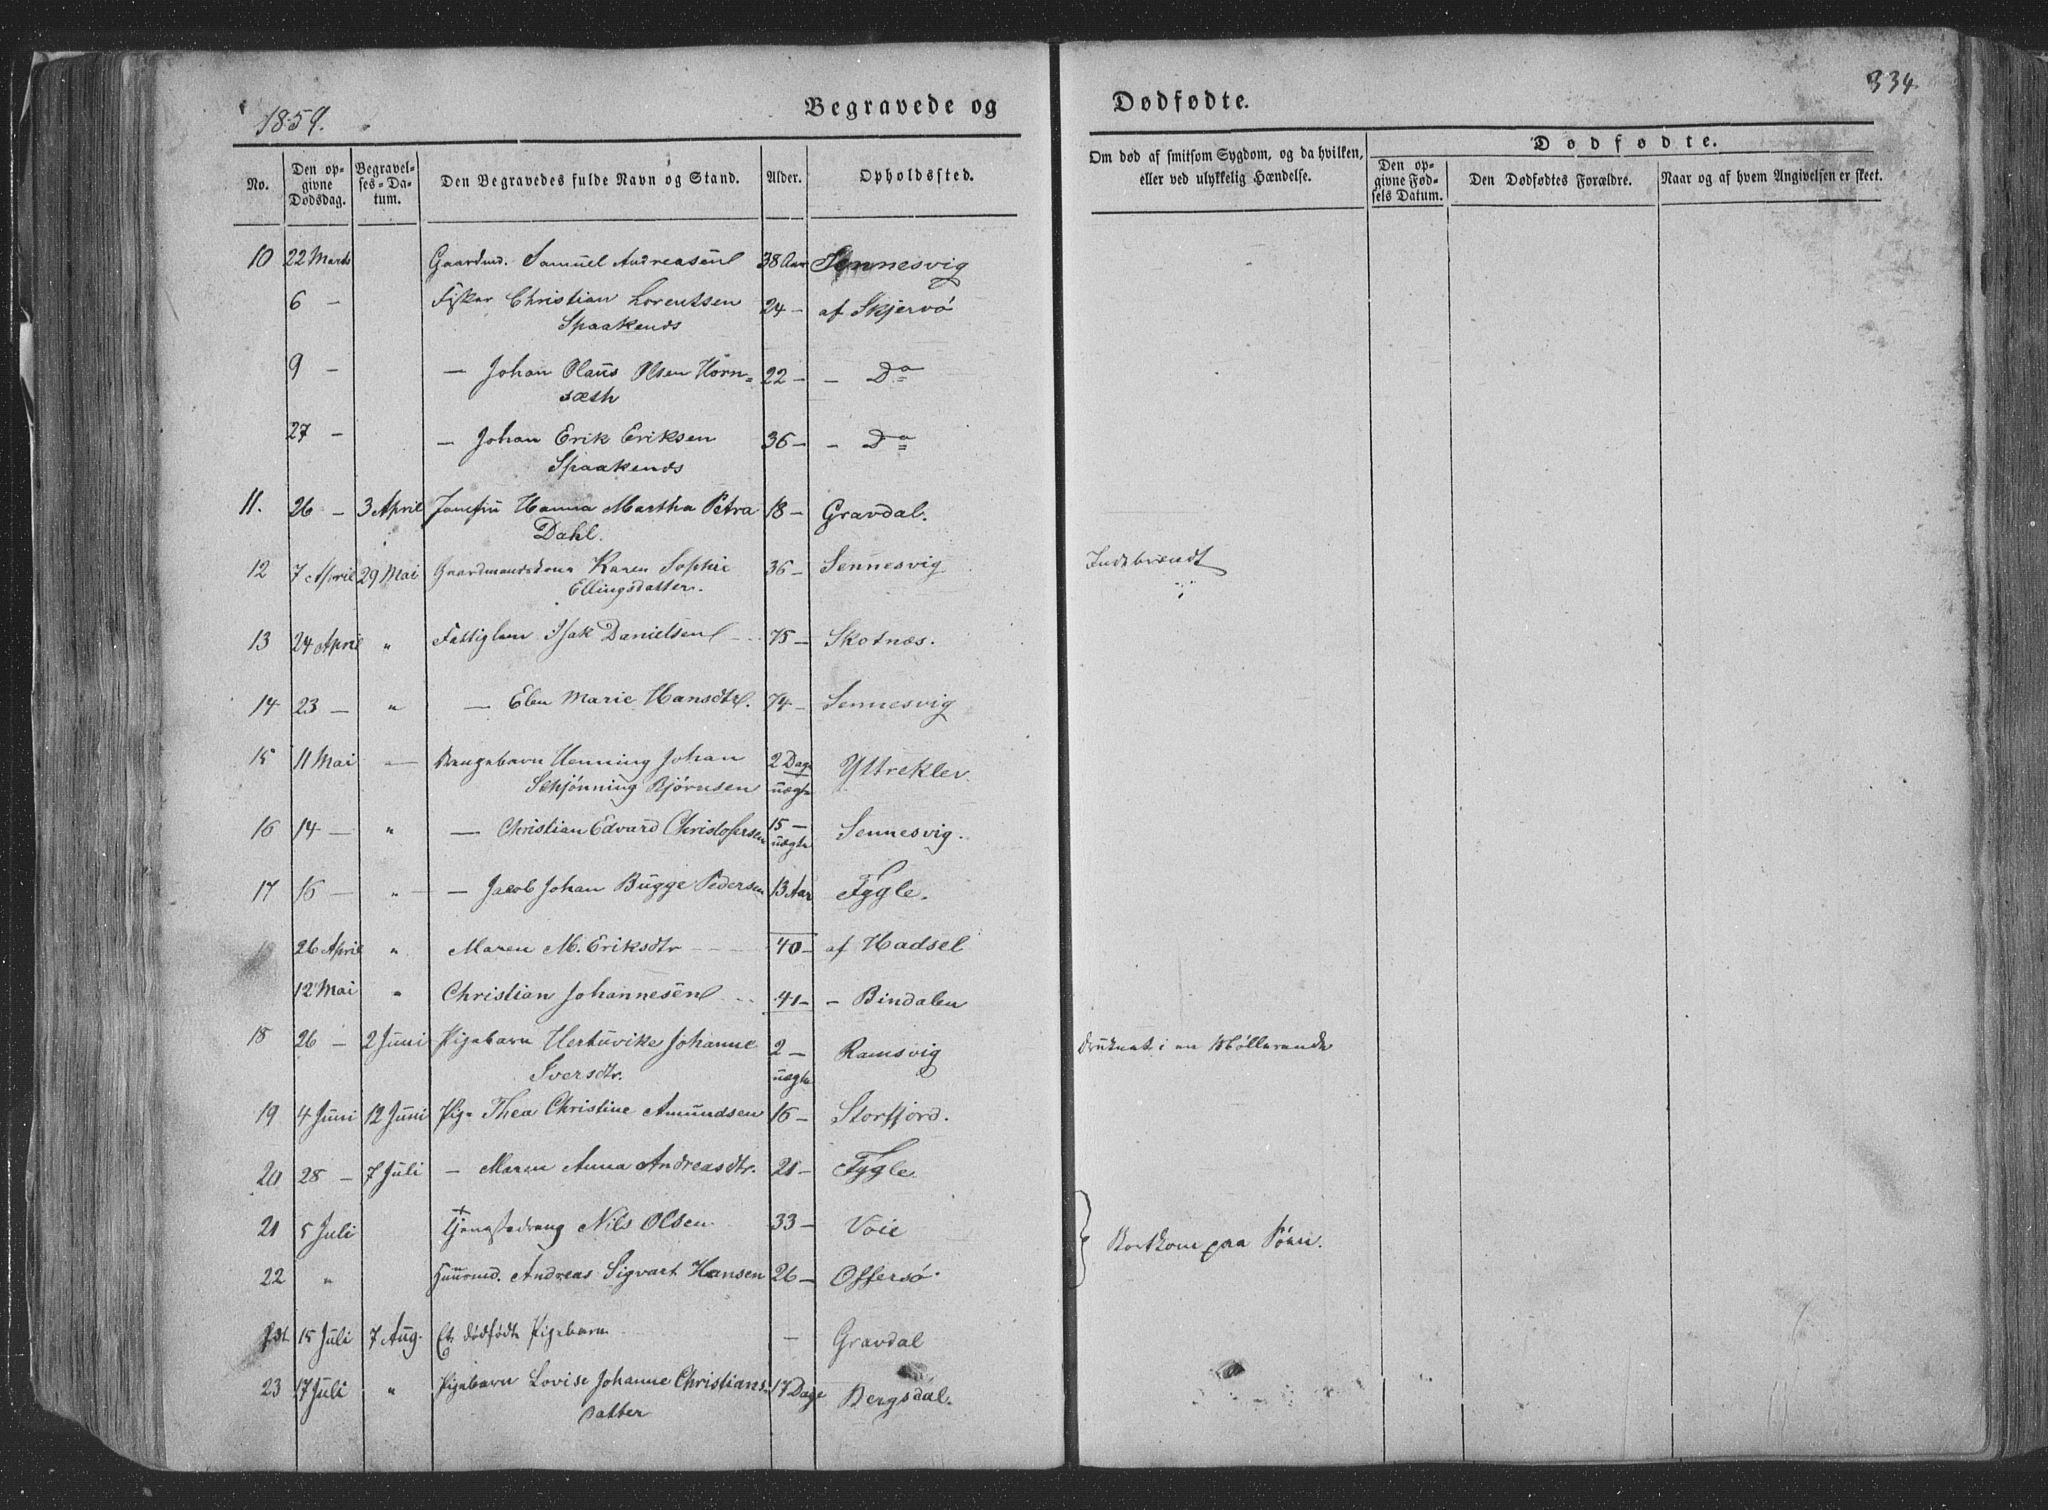 1859.
Begravede og
Dødfødte.
334
No.
Den op-
givne
Dødsdag.
Begravel-
ses-Da-
tum.
Den Begravedes fulde Navn og Stand.
Alder.
Opholdssted.
Om død af smitsom Sygdom, og da hvilken,
eller ved ulykkelig Hændelse.
Dødfødte.
Den op-
givne Fød-
sels Datum.
Den Dødfødtes Forældre.
Naar og af hvem Angivelsen er skeet.
10 22 Marts Gaardmd. Samuel Andreasen 38 Aar Sennesvig
6 — Fisker Christian Lorentsen 24 — af Skjervö
Spaakends
9 — — Johan Olaus Olsen Horn= 22 — — Do
sæth
27 — — Johan Erik Eriksen 36 — — Do
Spaakends
11. 26 — 3 April Jomfru Hanna Martha Petra 18 — Gravdal.
Dahl.
12 7 April 29 Mai Gaardmandskone Karen Sophie 36 — Sennesvig Indebrændt
Ellingsdatter.
13 24 April " Fattiglem Isak Danielsen 75 — Skotnæs.
14 23 — " — Elen Marie Hansdtr. 74 — Sennesvig
15 11 Mai — Drengebarn Henning Johan 2 Dage Yttreklev.
Schjønning Bjørnsen uægte
16 14 — " — Christian Edvard Christofersen 15 — Sennesvig.
uægte
17 16 — " — Jacob Johan Bugge Pedersen 13 Aar Fygle.
26 April " Maren M. Eriksdtr 40 — af Hadsel
12 Mai " Christian Johannesen 41 — — Bindalen
18 26 — 2 Juni Pigebarn Hertuvike Johanne 2 — Ramsvig druknet i en Möllerende
Iversdtr. uægte
19 4 Juni 12 Juni Pige Thea Christine Amundsen 16 — Storfjord.
20 28 — 7 Juli — Maren Anna Andreasdtr. 21 — Fygle.
21 5 Juli Tjenestedreng Nils Olsen. 33 — Voie
Bortkom paa Søen.
22 " Huusmd. Andreas Sigvart Hansen 26 — Offersö
15 Juli 7 Aug. Et dödfödt Pigebarn — Gravdal
23 17 Juli " Pigebarn Lovise Johanne Christians- 17 Dage Bergsdal.
datter